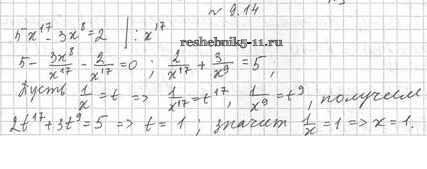 № 9.14
5x¹⁷ - 3x⁸ = 2 | : x¹⁷
reshebnik5-11.ru
5 - 3x⁸/x¹⁷ - 2/x¹⁷ = 0 ; 2/x¹⁷ + 3/x⁹ = 5 ;
Пусть 1/x = t => 1/x¹⁷ = t¹⁷, 1/x⁹ = t⁹, получим
2t¹⁷ + 3t⁹ = 5 => t = 1 ; значит 1/x = 1 => x = 1.